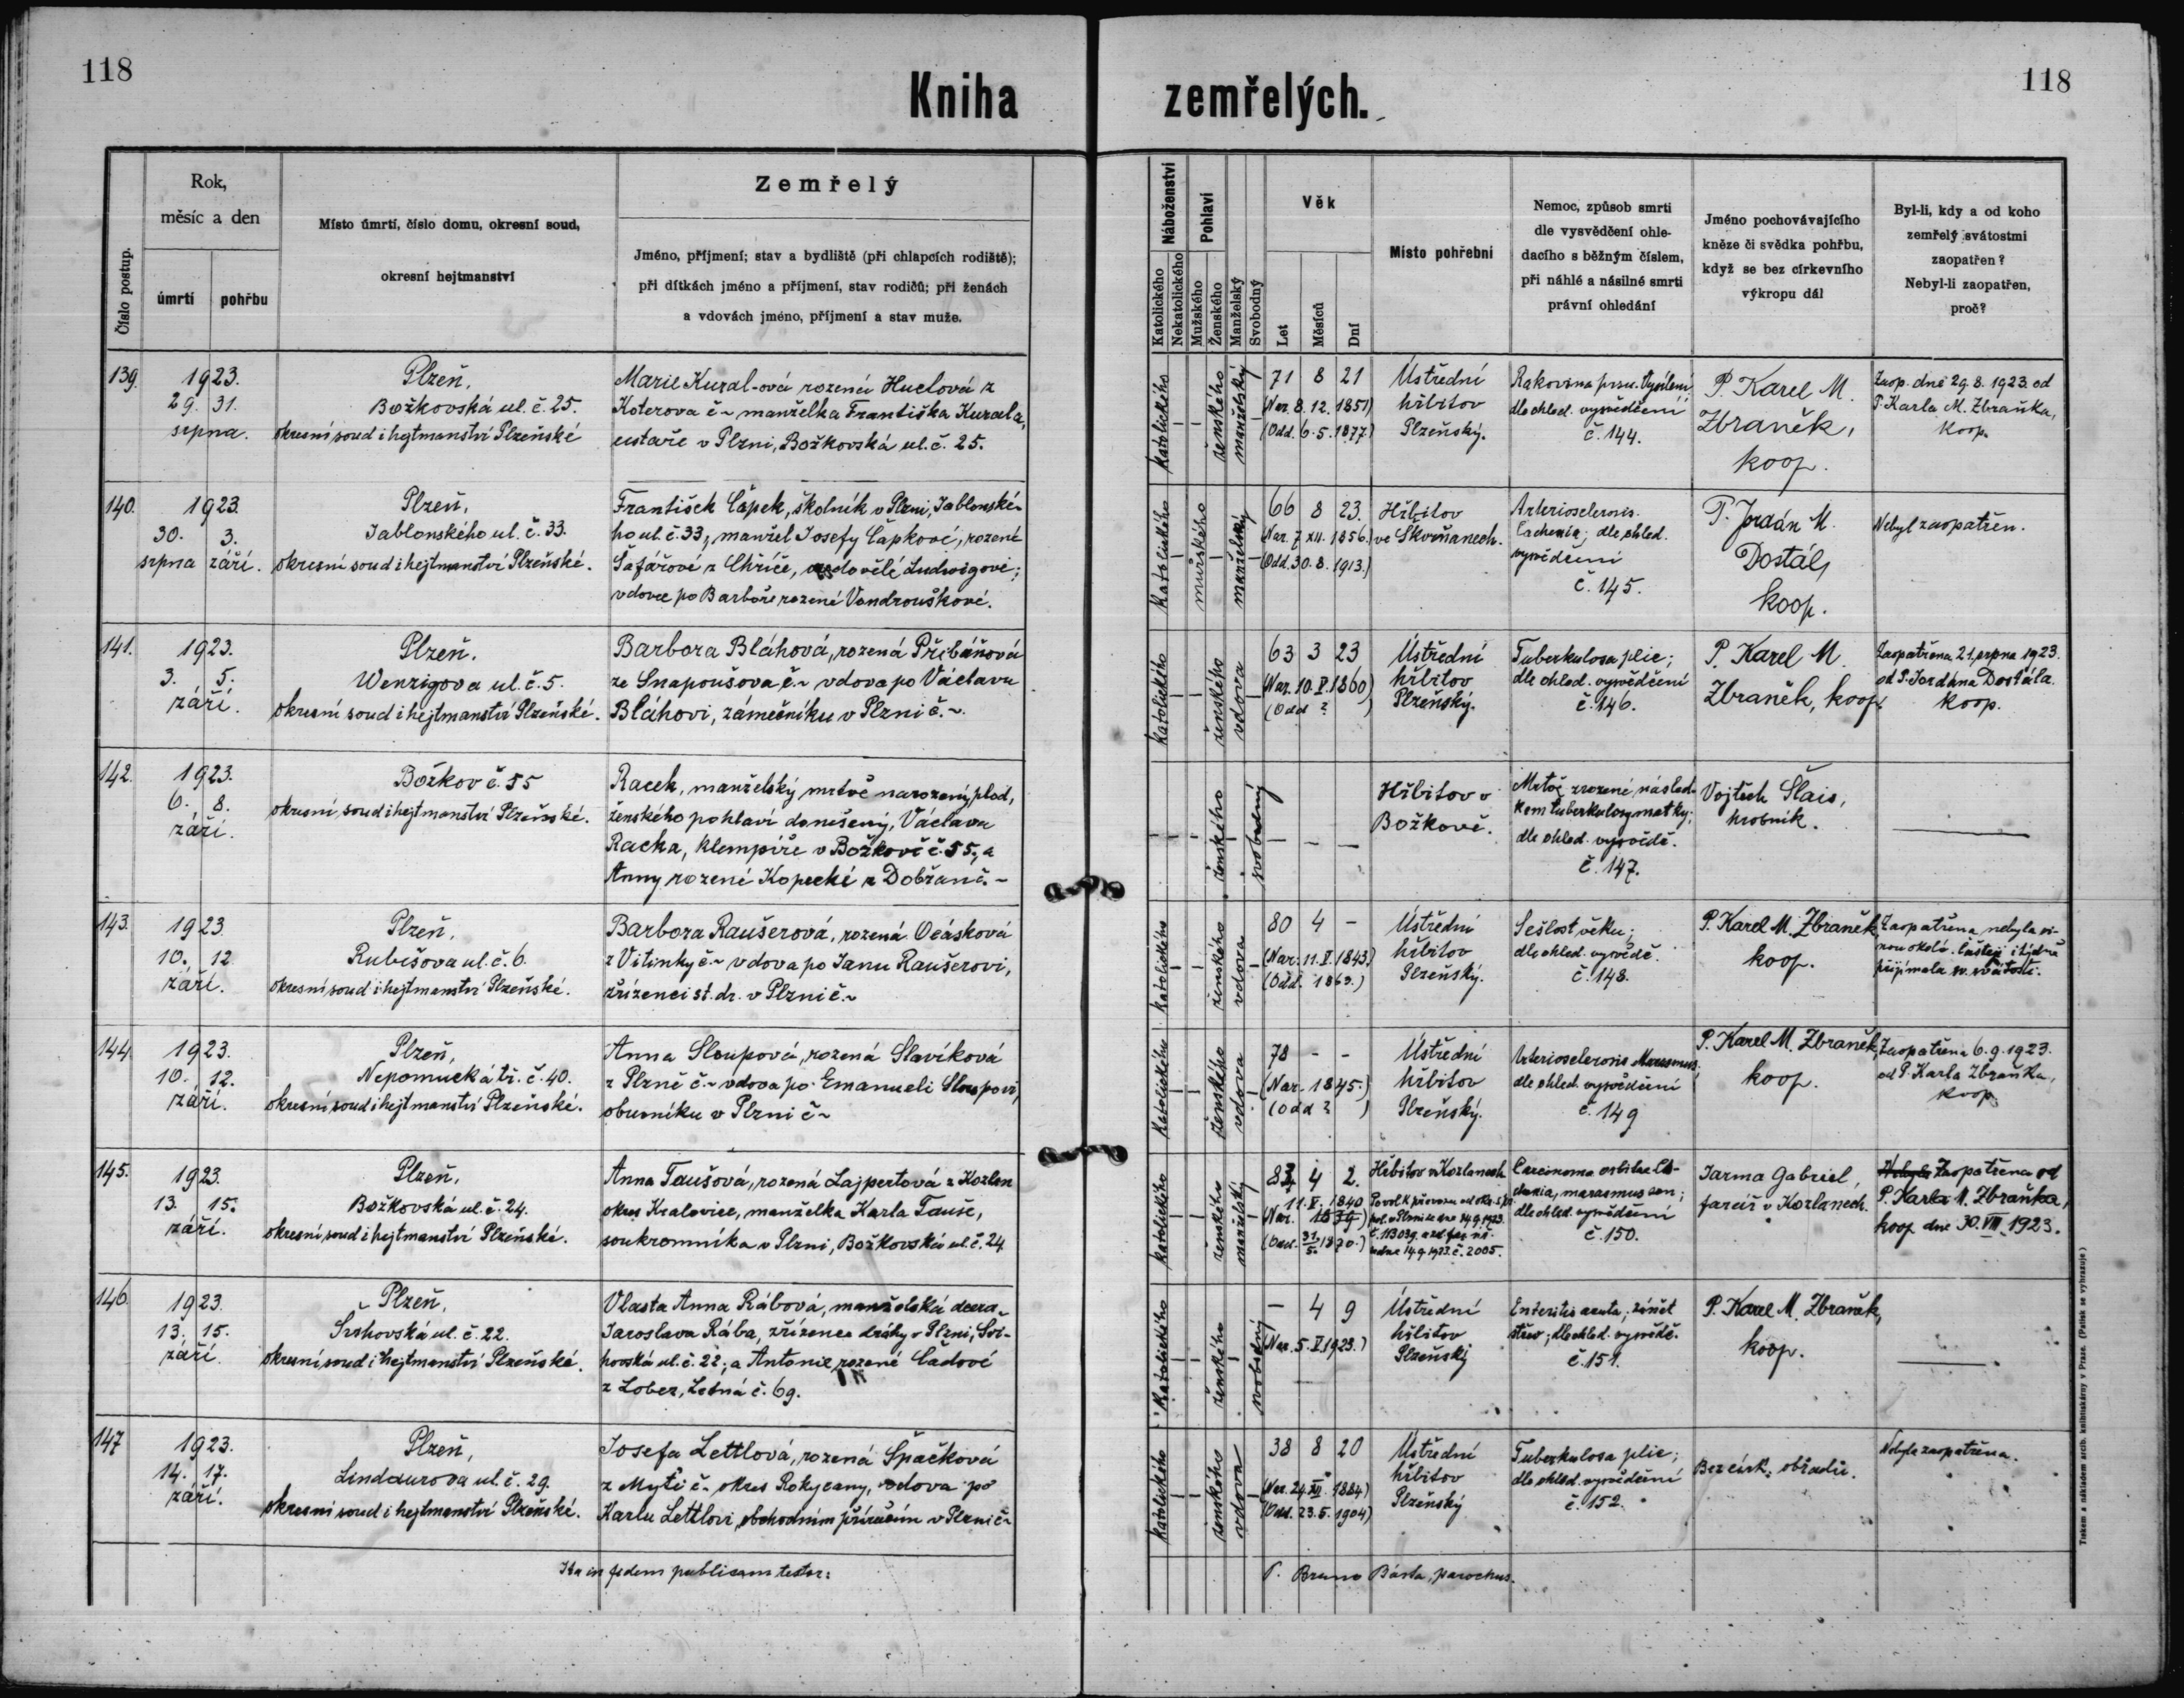 118
118
Kniha zemřelých.
Číslo postup.
Rok,
měsíc a den
úmrtí
pohřbu
Místo úmrtí, číslo domu, okresní soud,
okresní hejtmanství
Zemřelý
Jméno, příjmení; stav a bydliště (při chlapcích rodiště);
při dítkách jméno a příjmení, stav rodičů; při ženách
a vdovách jméno, příjmení a stav muže.
Náboženství
Katolického
Nekatolického
Pohlaví
Mužského
Ženského
Manželský
Svobodný
Věk
Let
Měsíců
Dní
Místo pohřební
Nemoc, způsob smrti
dle vysvědčení ohle-
dacího s běžným číslem,
při náhlé a násilné smrti
právní ohledání
Jméno pochovávajícího
kněze či svědka pohřbu,
když se bez církevního
výkropu dál
Byl-li, kdy a od koho
zemřelý svátostmi
zaopatřen?
Nebyl-li zaopatřen,
proč?
139.
1923.
29. 31.
srpna.
Plzeň,
Božkovská ul. č. 25.
okresní soud i hejtmanství Plzeňské
Marie Kuzal-ová rozená Huclová z
Koterova č~ manželka Františka Kuzala,
v Plzni, Božkovská ul. č. 25.
katolického
ženského
manželský
71 8 21
(Nar. 8. 12. 1851)
(Odd. 6. 5. 1877)
Ústřední
hřbitov
Plzeňský.
Rakovina prsu. Vysílení
dle ohled. vysvědčení
č. 144.
P. Karel M.
Zbraněk,
koop.
Zaop. dne 29. 8. 1923. od
P. Karla M. Zbraňka,
koop.
140.
1923.
30. 3.
srpna září.
Plzeň,
Jablonského ul. č. 33.
okresní soud i hejtmanství Plzeňské.
František Čapek, školník v Plzni, Jablonské-
ho ul. č. 33, manžel Josefy Čapkové, rozené
Šafářové z Chříče, ovdovělé Ludwigové;
vdovec po Barboře rozené Vondrouškové.
katolického
mužského
manželský
66 8 23.
(Nar. 7 XII. 1856.)
(Odd. 30. 8. 1913.)
Hřbitov
ve Skvrňanech.
Arteriosclerosis.
Cachexia; dle ohled.
vysvědčení
č. 145.
P. Jordán M.
Dostál,
koop.
Nebyl zaopatřen.
141.
1923.
3. 5.
září.
Plzeň.
Wenzigova ul. č. 5.
okresní soud i hejtmanství Plzeňské.
Barbora Bláhová, rozená Přibáňová
ze Snapoušova č.~ vdova po Václavu
Bláhovi, zámečníku v Plzni č.~.
katolického
ženského
vdova
63 3 23
(Nar. 10. V. 1860)
(Odd ? )
Ústřední
hřbitov
Plzeňský.
Tuberkulosa plic;
dle ohled. vysvědčení
č. 146.
P. Karel M.
Zbraněk, koop.
Zaopatřena 21. srpna 1923.
od P. Jordána Dostála.
koop.
142.
1923.
6. 8.
září.
Božkov č. 55
okresní soud i hejtmanství Plzeňské.
Racek, manželský mrtvě narozený plod,
ženského pohlaví donešený, Václava
Racka, klempíře v Božkově č. 55, a
Anny rozené Kopecké z Dobřan č.~
ženského
svobodný
Hřbitov v
Božkově.
Mrtvě zrozené násled-
kem tuberkulosy matky;
dle ohled. vysvědč.
č. 147.
Vojtěch Šlais,
hrobník.
143.
1923
10. 12
září.
Plzeň,
Rubešova ul. č. 6.
okresní soud i hejtmanství Plzeňské.
Barbora Raušerová, rozená Ocásková
z Vitinky č.~ vdova po Janu Raušerovi,
zřízenci st. dr. v Plzni č.~
katolického
ženského
vdova
80 4 -
(Nar. 11. V. 1843.)
(Odd. 1863.)
Ústřední
hřbitov
Plzeňský.
Sešlost věku;
dle ohled. vysvědč.
č. 148.
P. Karel M. Zbraněk,
koop.
Zaopatřena nebyla vi-
nou okolí. Častěji i týdně
přijímala sv. svátosti.
144.
1923.
10. 12.
září.
Plzeň,
Nepomucká tř. č. 40.
okresní soud i hejtmanství Plzeňské.
Anna Sloupová, rozená Slavíková
z Plzně č.~ vdova po Emanueli Sloupovi,
obuvníku v Plzni č~
katolického
ženského
vdova
78 - -
(Nar. 1845.)
(Odd ? )
Ústřední
hřbitov
Plzeňský.
Arteriosclerosis Marasmus.
dle ohled. vysvědčení
č. 149
P. Karel M. Zbraněk,
koop.
Zaopatřena 6. 9. 1923.
od P. Karla Zbraňka,
koop.
145.
1923.
13. 15.
září.
Plzeň,
Božkovská ul. č. 24.
okresní soud i hejtmanství Plzeňské.
Anna Taušová, rozená Lajpertová z Kozlan
okres Kralovice, manželka Karla Tauše,
soukromníka v Plzni, Božkovská ul. č. 24
katolického
ženského
manželský
83 4 2.
11. V. 1840
(Nar. 1839)
(Odd. 31/5. 1870.)
Hřbitov v Kozlanech
pol. v Plzni ze dne 14. 9. 1923.
č. 113039.
ze dne 14. 9. 1923. č. 2005.
Carcinoma orbitae Ca-
chexia, marasmus sen;
dle ohled. vysvědčení
č. 150.
Jarma Gabriel,
farář v Kozlanech.
Nebyla Zaopatřena od
P. Karla M. Zbraňka,
koop. dne 30. VIII. 1923.
146.
1923.
13. 15.
září
Plzeň,
Švihovská ul. č. 22.
okresní soud i hejtmanství Plzeňské.
Vlasta Anna Rábová, manželská dcera
Jaroslava Rába, zřízence dráhy v Plzni, Švi-
hovská ul. č. 22; a Antonie rozené Čadové
z Lobez, Letná č. 69.
katolického
ženského
svobodný
- 4 9
(Nar. 5. V. 1923.)
Ústřední
hřbitov
Plzeňský
Enteritis acuta; zánět
střev; dle ohled. vysvědč.
č. 151.
P. Karel M. Zbraněk,
koop.
147
1923.
14. 17.
září.
Plzeň,
Lindaurova ul. č. 29.
okresní soud i hejtmanství Plzeňské.
Josefa Lettlová, rozená Špačková
z Mýti č. okres Rokycany, vdova po
Karlu Lettlovi obchodním příručím v Plzni č~
katolického
ženského
vdova
38 8 20
(Nar. 24. XII. 1884)
(Odd. 23. 5. 1904)
Ústřední
hřbitov
Plzeňský
Tuberkulosa plic;
dle ohled. vysvědčení
č. 152.
Bez círk. obřadu.
Nebyla zaopatřena.
Ita in fidem publicam testor:
P. Bruno Bárta, parochus.
Tiskem a nákladem arcib. knihtiskárny v Praze. (Patisk se vyhrazuje)